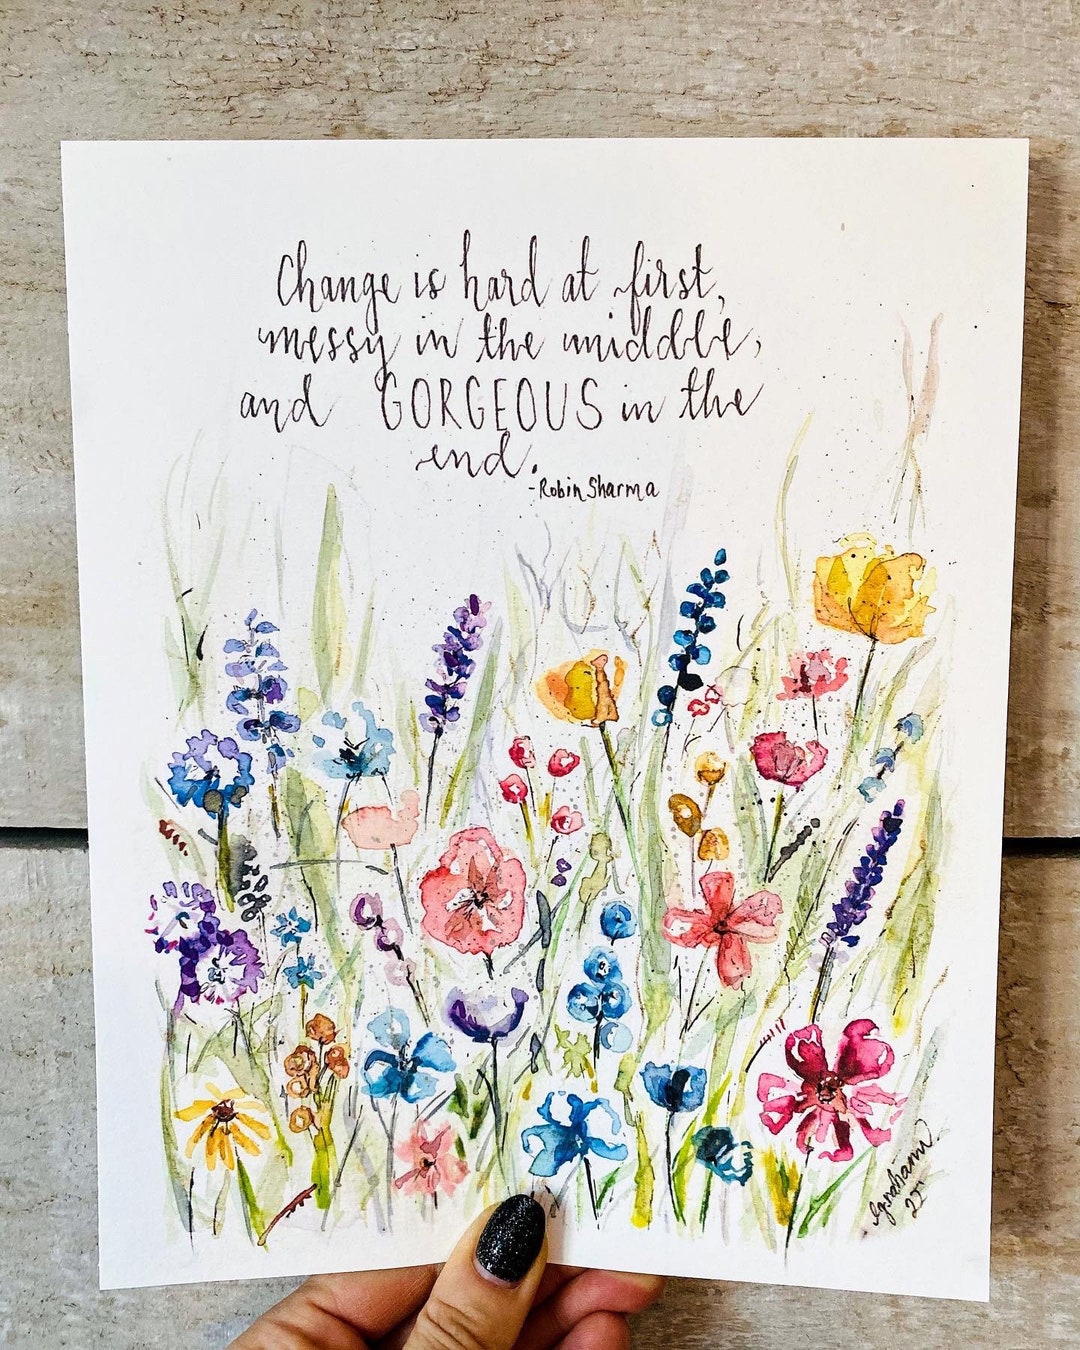 Change is hard at first,
messy in the middle,
and GORGEOUS in the
end.
-Robin Sharma
22